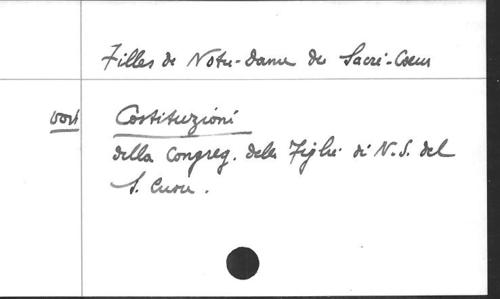 Filles de Notre-Dame du Sacré-Coeur
voir Costituzioni
della Congreg. delle Figlie di N.S. del
S. Cuore.